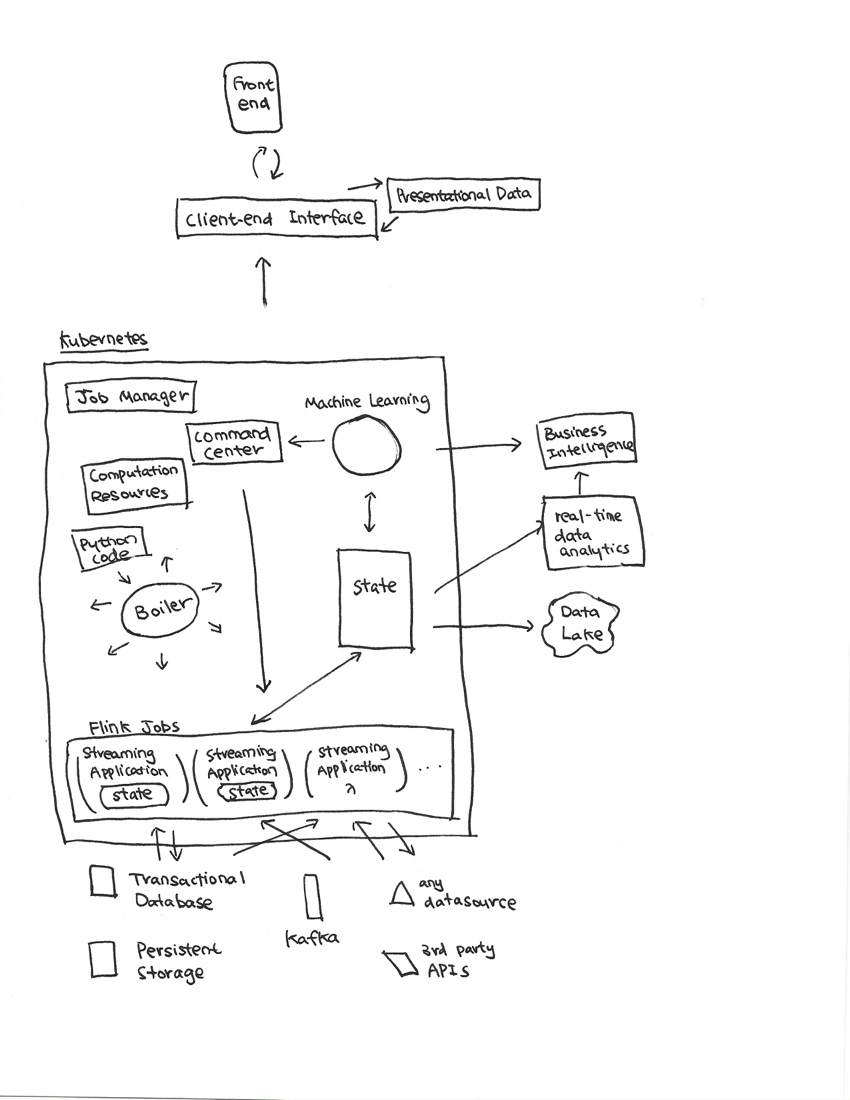 Front
end
Client-end Interface
Presentational Data
Kubernetes
Job Manager
Machine Learning
Command
Center
Business
Intelligence
Computation
Resources
real-time
data
analytics
Python
code
State
Boiler
Data
Lake
Flink Jobs
Streaming
Application
state
Streaming
Application
state
Streaming
Application
λ
...
Transactional
Database
Kafka
any
datasource
Persistent
Storage
3rd party
APIs